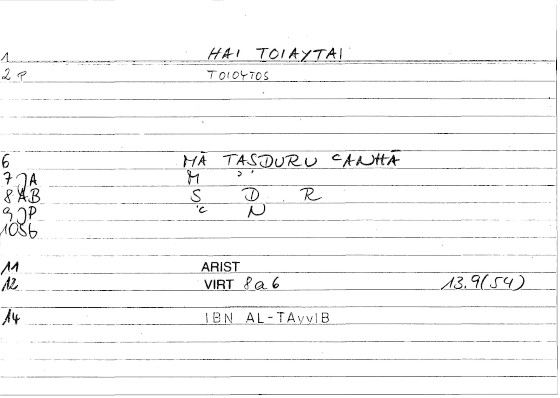 1 HAI TOIAYTAI
2 P TOIOYTOS
6 MĀ TAṢDURU ʿANHĀ
7 JA M ʾʾ
8 AB S D R
9 JP ʿ N
10 SG
11 ARIST
12 VIRT 8a6 13.9(54)
14 IBN AL-TAyyIB